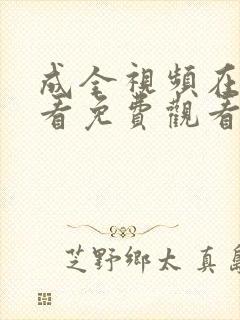 成全視頻在
看免費觀看
芝野鄉太真島